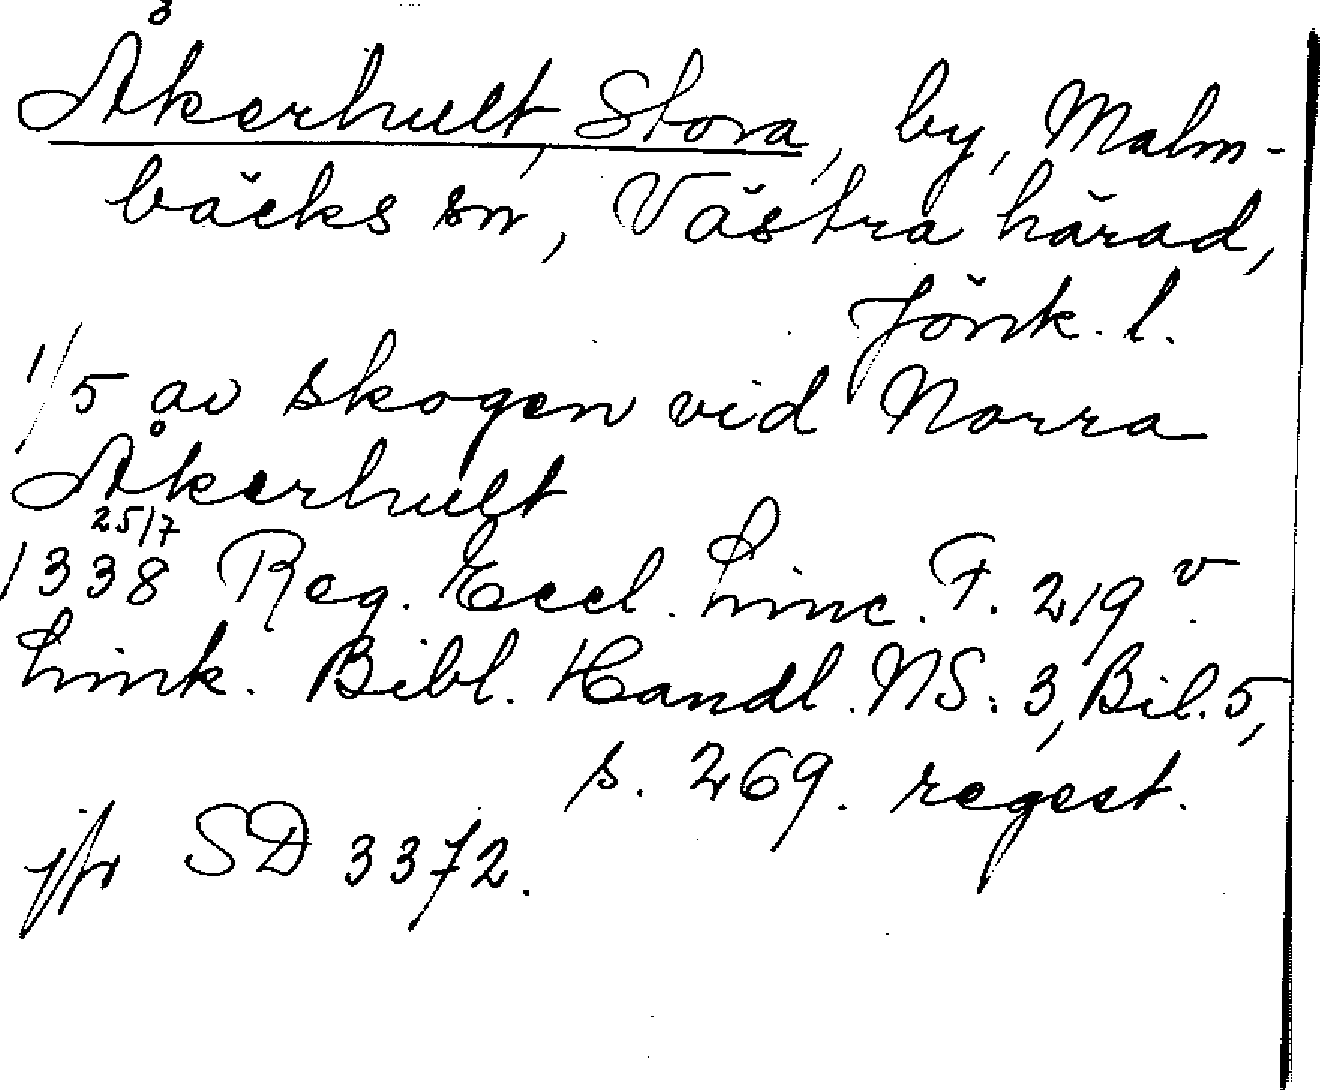 Åkerhult, Stora, by, Malm-
bäcks sn, Västra härad,
Jönk. l.
1/5 av skogen vid Norra
Åkerhult
25/7
1338 Reg. Eccl. Linc. F. 219 v.
Link. Bibl. Handl. NS: 3, Bil. 5,
s. 269. regest.
jfr SD 3372.